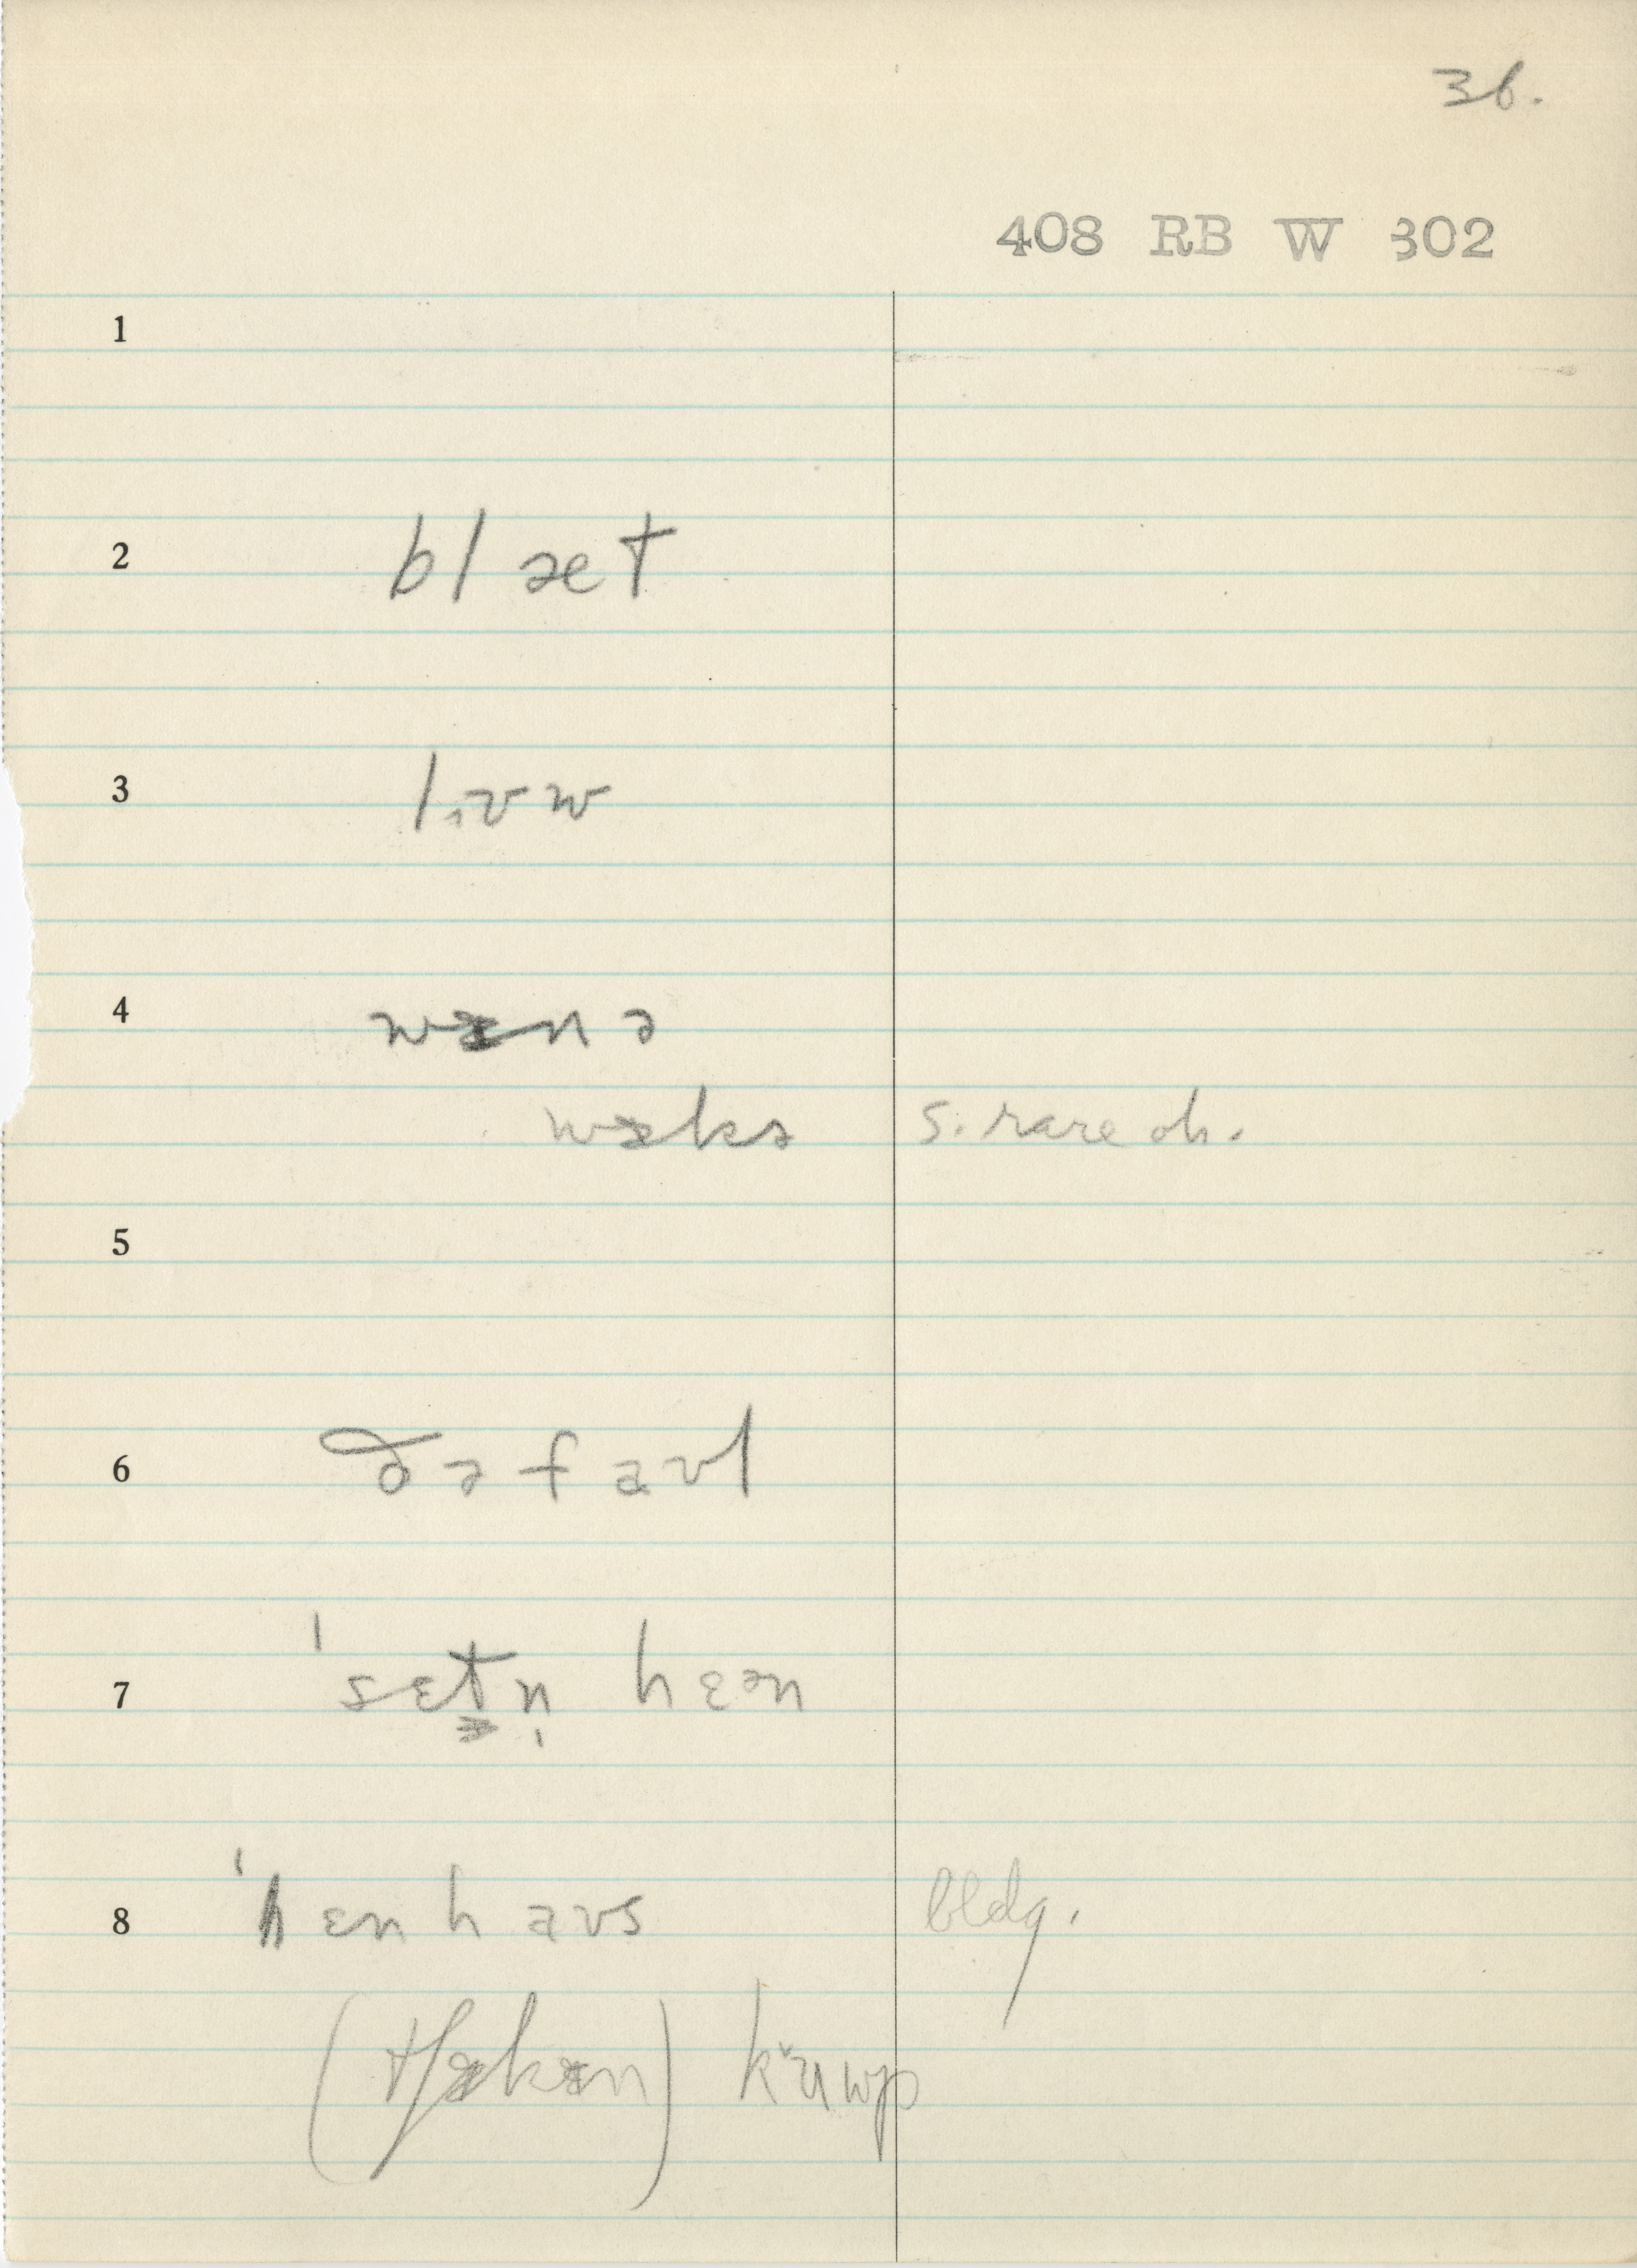 36.
408 RB W 302
1
2 blæt
3 l,ʊw
4 wɪnə
wɪkə s. rare oh.
5
6 ðə faʊl
7 ˈsɛt̬n̩ hɛən
8 ˈhɛnhaʊs bldg.
(tʃɪkɪn) kʊ̌wp